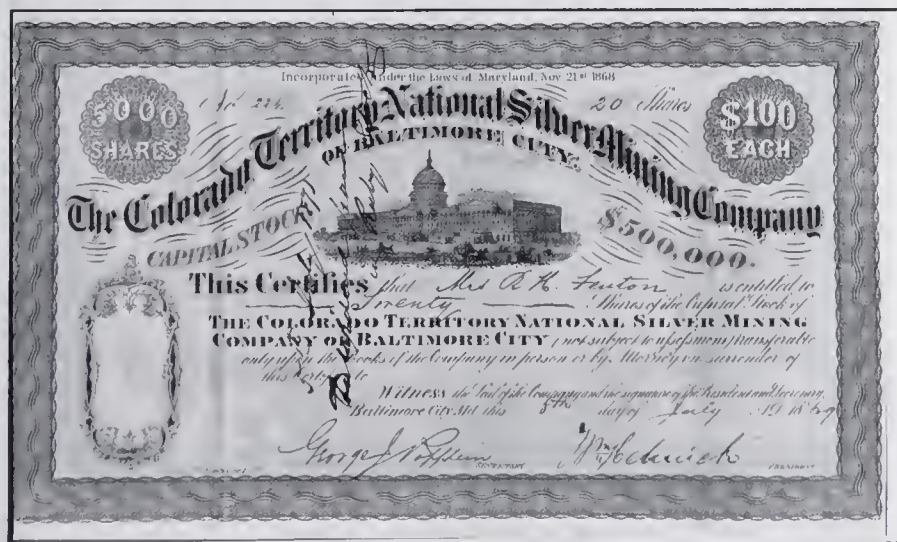 Incorporated under the Laws of Maryland, Nov 21st 1868
5000 SHARES
No. 224.
20 Shares
$100 EACH
The Colorado Territory National Silver Mining Company
OF BALTIMORE CITY.
CAPITAL STOCK
$500,000.
This Certifies that Mrs R. H. Fenton is entitled to
Twenty Shares of the Capital Stock of
THE COLORADO TERRITORY NATIONAL SILVER MINING
COMPANY OF BALTIMORE CITY, not subject to assessment, transferable
only upon the Books of the Company in person or by Attorney on surrender of
this Certificate
Witness the Seal of the Company and the signature of the President and Secretary,
Baltimore City Md. this 8th day of July 1869
George J.
SECRETARY
Wm
PRESIDENT